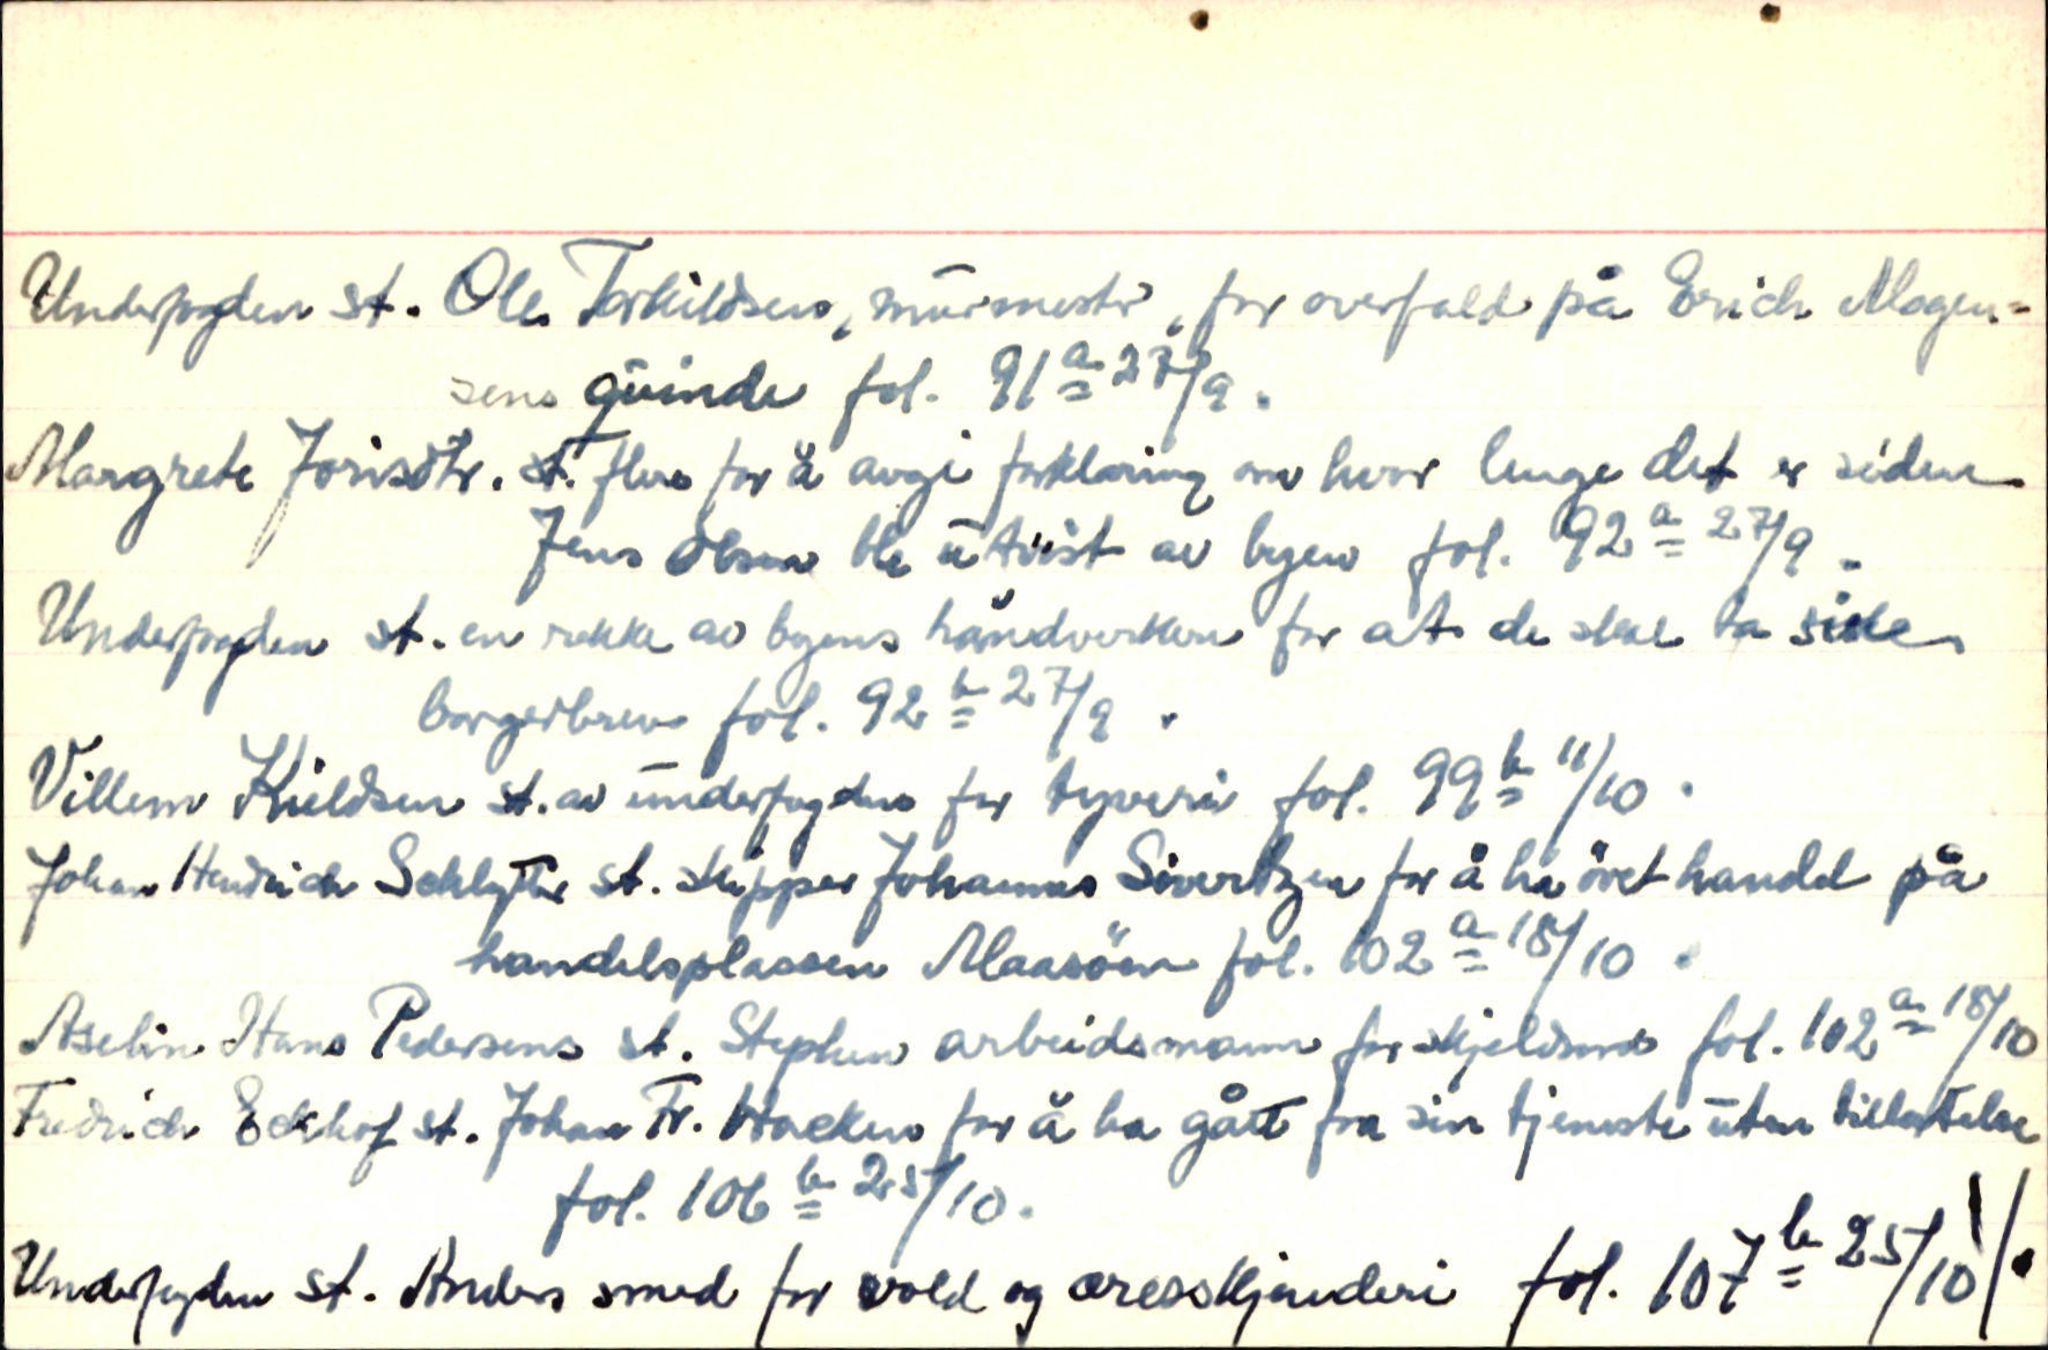 Underfogden st. Ole Torkildsen, mūrmestr, for overfald på Erich Mogen=
sens qūinde fol. 91 a 27/9.
Margrete Jorisdtr. st. flere for å avgi forklaring om hvor lenge det er siden
Jens Olsen ble ūtvist av byen fol. 92 a 27/9.
Underfogden st. en rekke av byens håndverkere for at de skal ta
borgerbrev fol. 92 b 27/9.
Villem Kieldsen st. av ūnderfogden for tyveri fol. 99 b 11/10.
Johan Hendrich Schlyter st. skipper Johannes Sivertzen for å ha övet handel på
handelsplassen Maasöen fol. 102 a 18/10.
Hans Pedersens st. Stephen arbeidsmann for skjeldsord fol. 102 a 18/10
Fredrich Eckhof st. Johan Fr. for å ha gått fra sin tjeneste ūten tillatelse
fol. 106 b 25/10.
Underfogden st. Anders smed for vold og æresskjenderi fol. 107 b 25/10